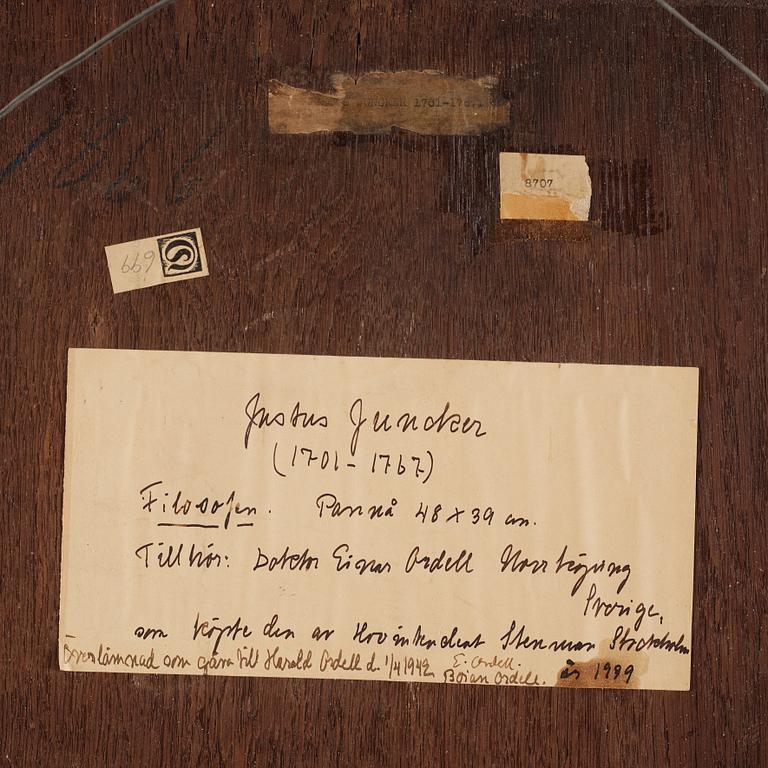 JUNCKER 1701-176
8707
699
Justus Juncker
(1701-1767)
Filosofen. Pannå 48 x 39 cm.
Tillhör: Doktor Einar Ordell Norrköping
Sverige,
som köpte den av Hovintendent Stenman Stockholm
år 1939
Överlämnad som gåva till Harald Ordell d. 1/4 1942
E. Ordell.
Ordell.